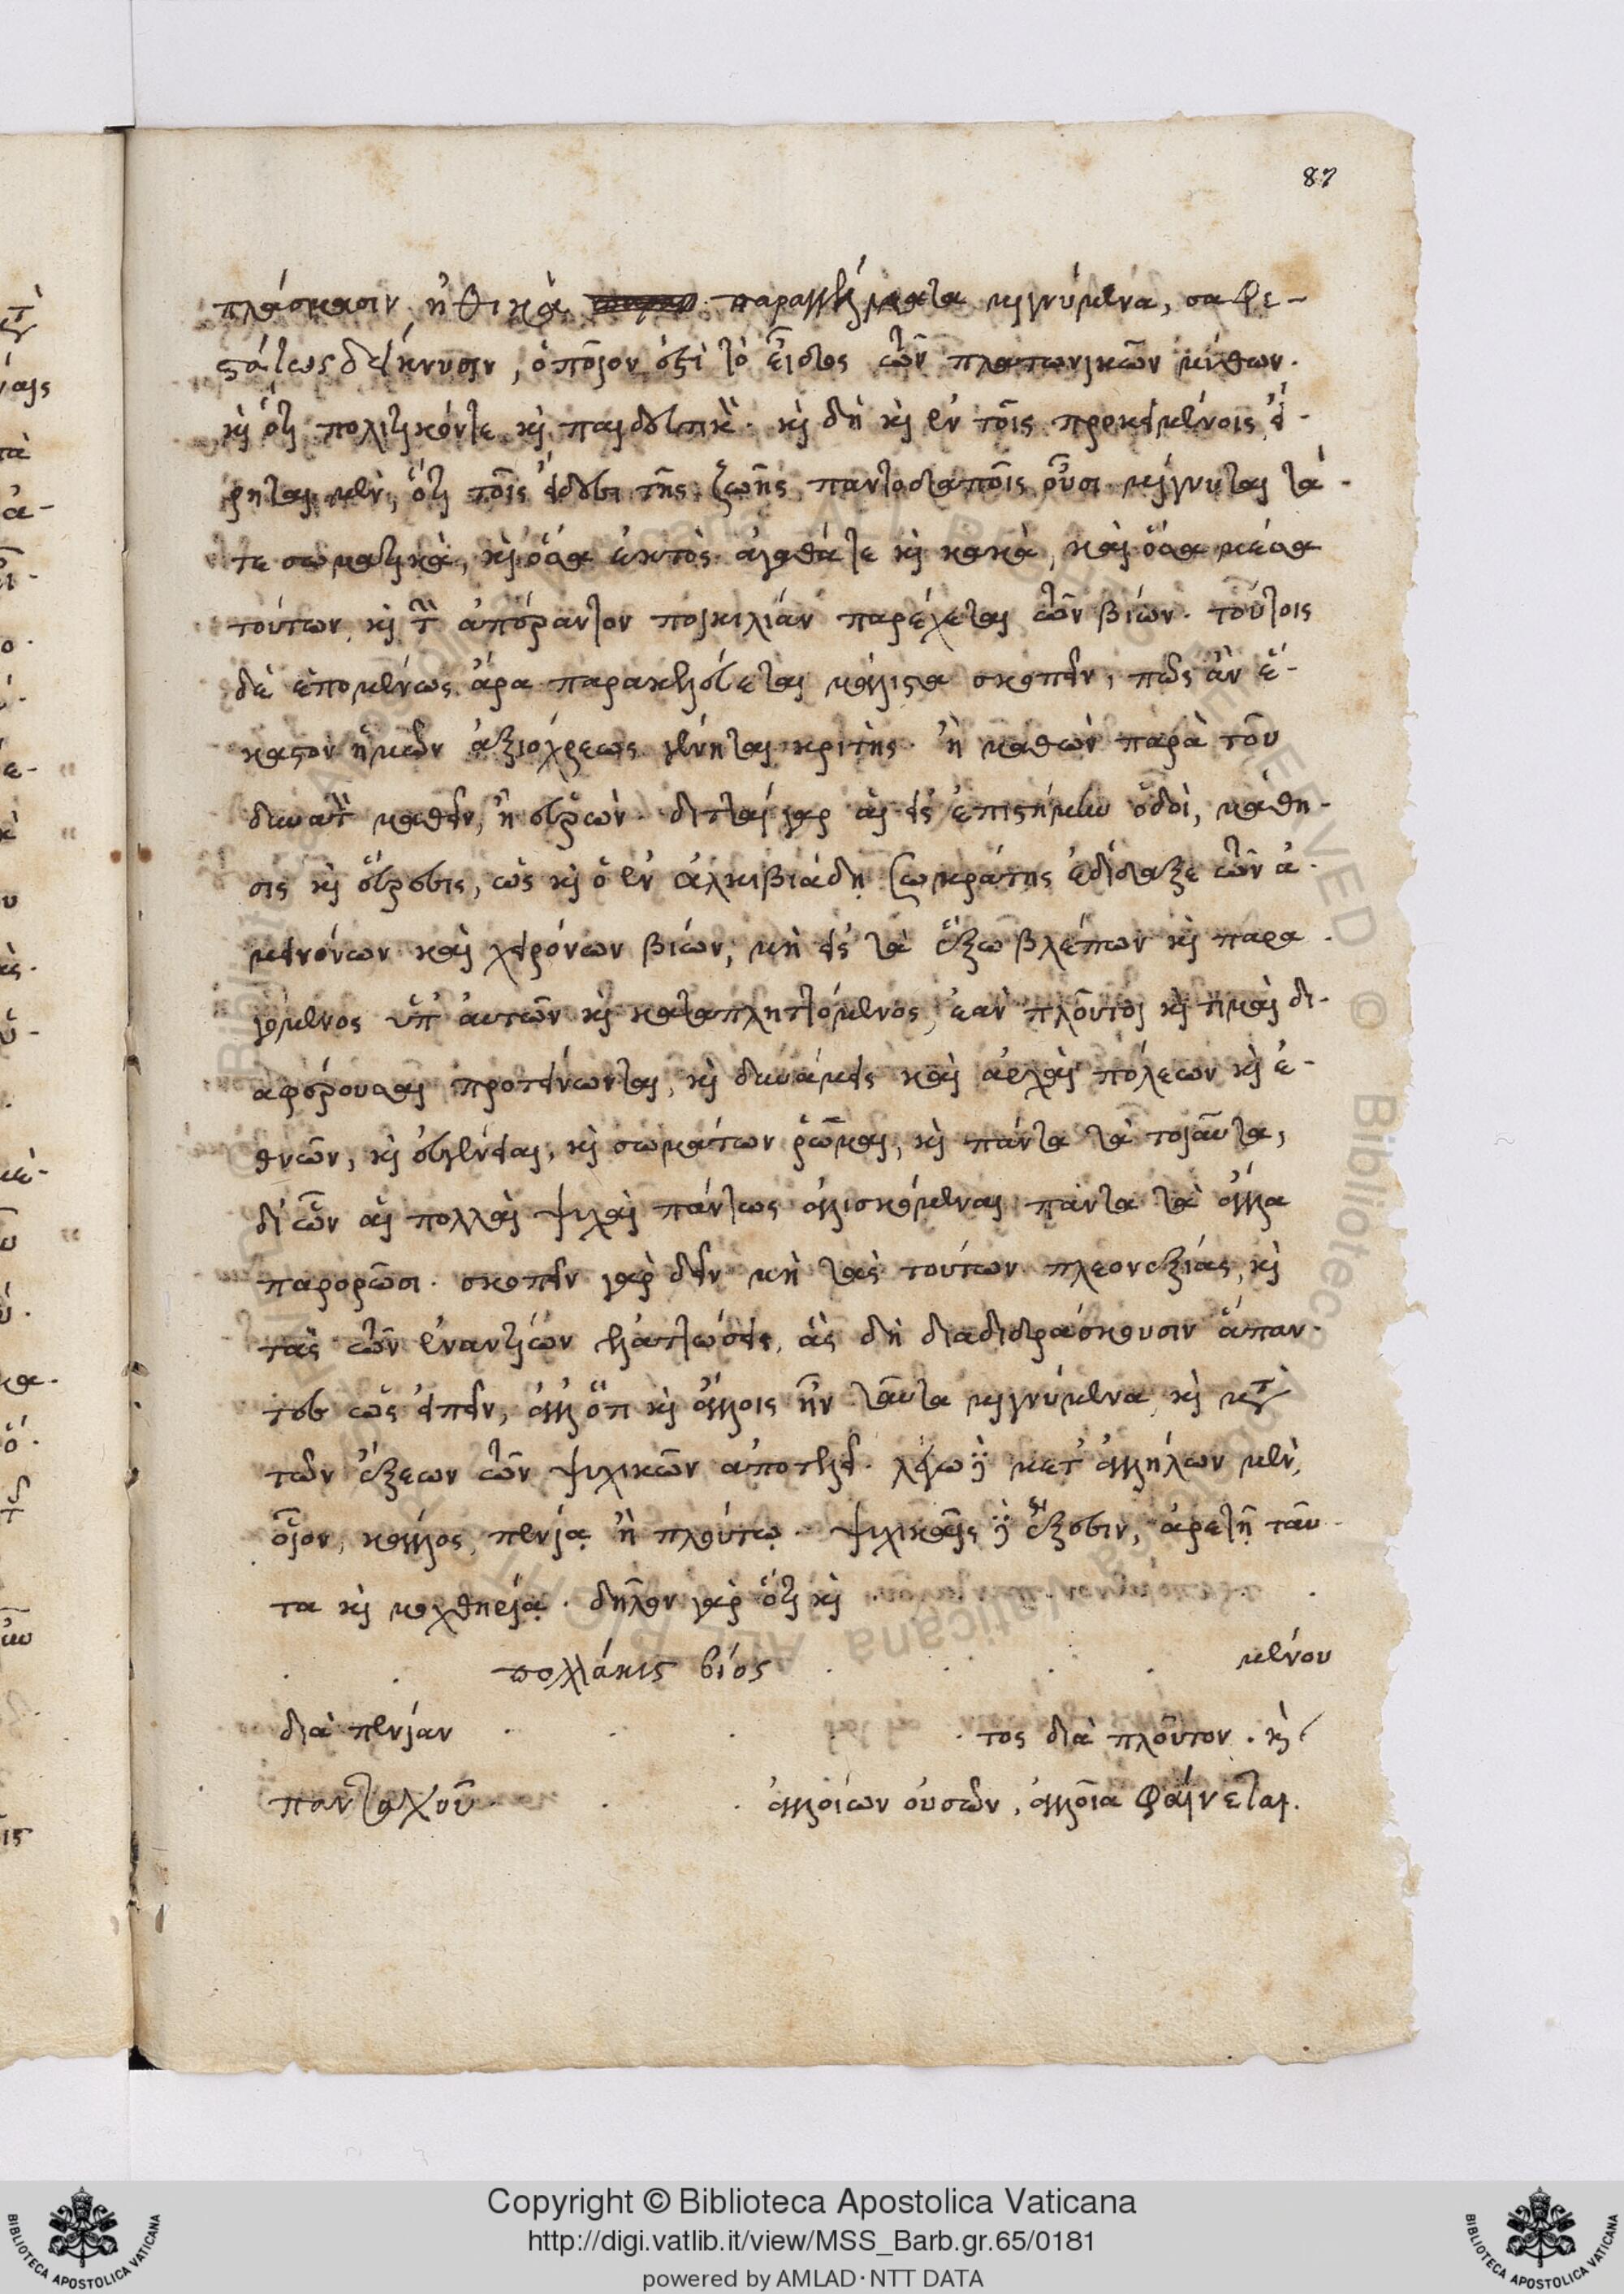 87
πλάσμασιν ἠθικὰ παραγγέλματα μιγνύμενα, σαφε-
στάτως δείκνυσιν, ὁποῖον ἐστὶ τὸ εἶδος τῶν πλατωνικῶν μύθων.
καὶ ὅτι πολιτικόν τε καὶ παιδευτικὸν. καὶ δὴ καὶ ἐν τοῖς προκειμένοις εἴ-
ρηται μὲν, ὅτι τοῖς εἴδεσι τῆς ζωῆς παντοδαποῖς οὖσι μίγνυται τά
τε σωματικὰ, καὶ ὅσα ἐκτὸς ἀγαθά τε καὶ κακὰ, καὶ ὅσα μέσα
τούτων, καὶ τὴν ἀπέραντον ποικιλίαν παρέχεται τῶν βίων. τούτοις
δὲ ἑπομένως ἄρα παρακελεύεται μάλιστα σκοπεῖν, πῶς ἂν ἕ-
καστον ἡμῶν ἀξιόχρεως γένηται κριτὴς. ἢ μαθὼν παρὰ τοῦ
δυνατοῦ μαθεῖν, ἢ εὑρών. διτταὶ γὰρ αἱ εἰς ἐπιστήμην ὁδοὶ, μάθη-
σις καὶ εὕρεσις, ὡς καὶ ὁ ἐν ἀλκιβιάδῃ Σωκράτης ἐδίδαξε τῶν ἀ-
μεινόνων καὶ χειρόνων βίων, μὴ εἰς τὰ ἔξω βλέπων καὶ παρα
γόμενος ὑπ' αὐτῶν καὶ καταπληττόμενος, ἐὰν πλοῦτοι καὶ τιμαὶ δι-
αφέρουσαι προτείνωνται, καὶ δυνάμεις καὶ ἀρχαὶ πόλεων καὶ ἐ-
θνῶν, καὶ εὐγένειαι, καὶ σωμάτων ῥῶμαι, καὶ πάντα τὰ τοιαῦτα,
δι' ὧν αἱ πολλαὶ ψυχαὶ πάντως ἁλισκόμεναι πάντα τὰ ἄλλα
παρορῶσι. σκοπεῖν γὰρ δεῖν μὴ τὰς τούτων πλεονεξίας, καὶ
τὰς τῶν ἐναντίων ἐλαττώσεις, ἃς δὴ διαδιδράσκουσιν ἅπαν-
τες ὡς εἰπεῖν, ἀλλ' ὅτι καὶ ἄλλοις ἦν ταῦτα μιγνύμενα καὶ μετὰ
τῶν ἕξεων τῶν ψυχικῶν ἀποτελεῖ. λέγω δὲ μετ' ἀλλήλων μὲν,
οἷον, κάλλος πενίᾳ ἢ πλούτῳ. ψυχικαῖς δὲ ἕξεσιν, ἀρετῇ ταῦ
τα καὶ μοχθηρίᾳ. δῆλον γὰρ ὅτι καὶ
. . πολλάκις βίος . . . . μένου
διὰ πενίαν . . . . . τος διὰ πλοῦτον. καὶ
πανταχοῦ . . . ἀλλοίων οὐσῶν, ἀλλοῖα φαίνεται.
Copyright © Biblioteca Apostolica Vaticana
http://digi.vatlib.it/view/MSS_Barb.gr.65/0181
powered by AMLAD · NTT DATA
BIBLIOTECA APOSTOLICA VATICANA
BIBLIOTECA APOSTOLICA VATICANA